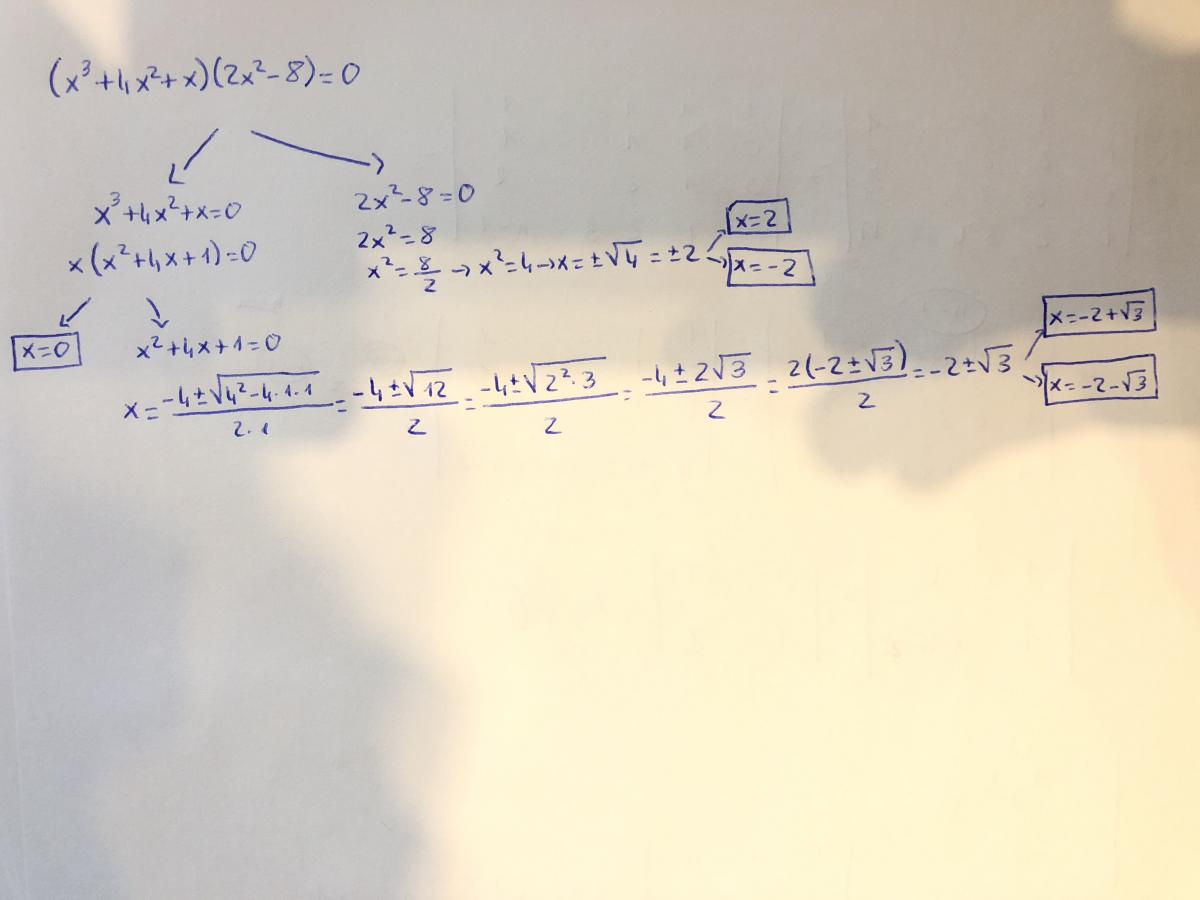 (x³+4x²+x)(2x²-8)=0
x³+4x²+x=0
x(x²+4x+1)=0
x=0
x²+4x+1=0
x = (-4±√(4²-4·1·1))/(2·1) = (-4±√12)/2 = (-4±√(2²·3))/2 = (-4±2√3)/2 = (2(-2±√3))/2 = -2±√3
x=-2+√3
x=-2-√3
2x²-8=0
2x²=8
x²=8/2 → x²=4 → x=±√4 = ±2
x=2
x=-2